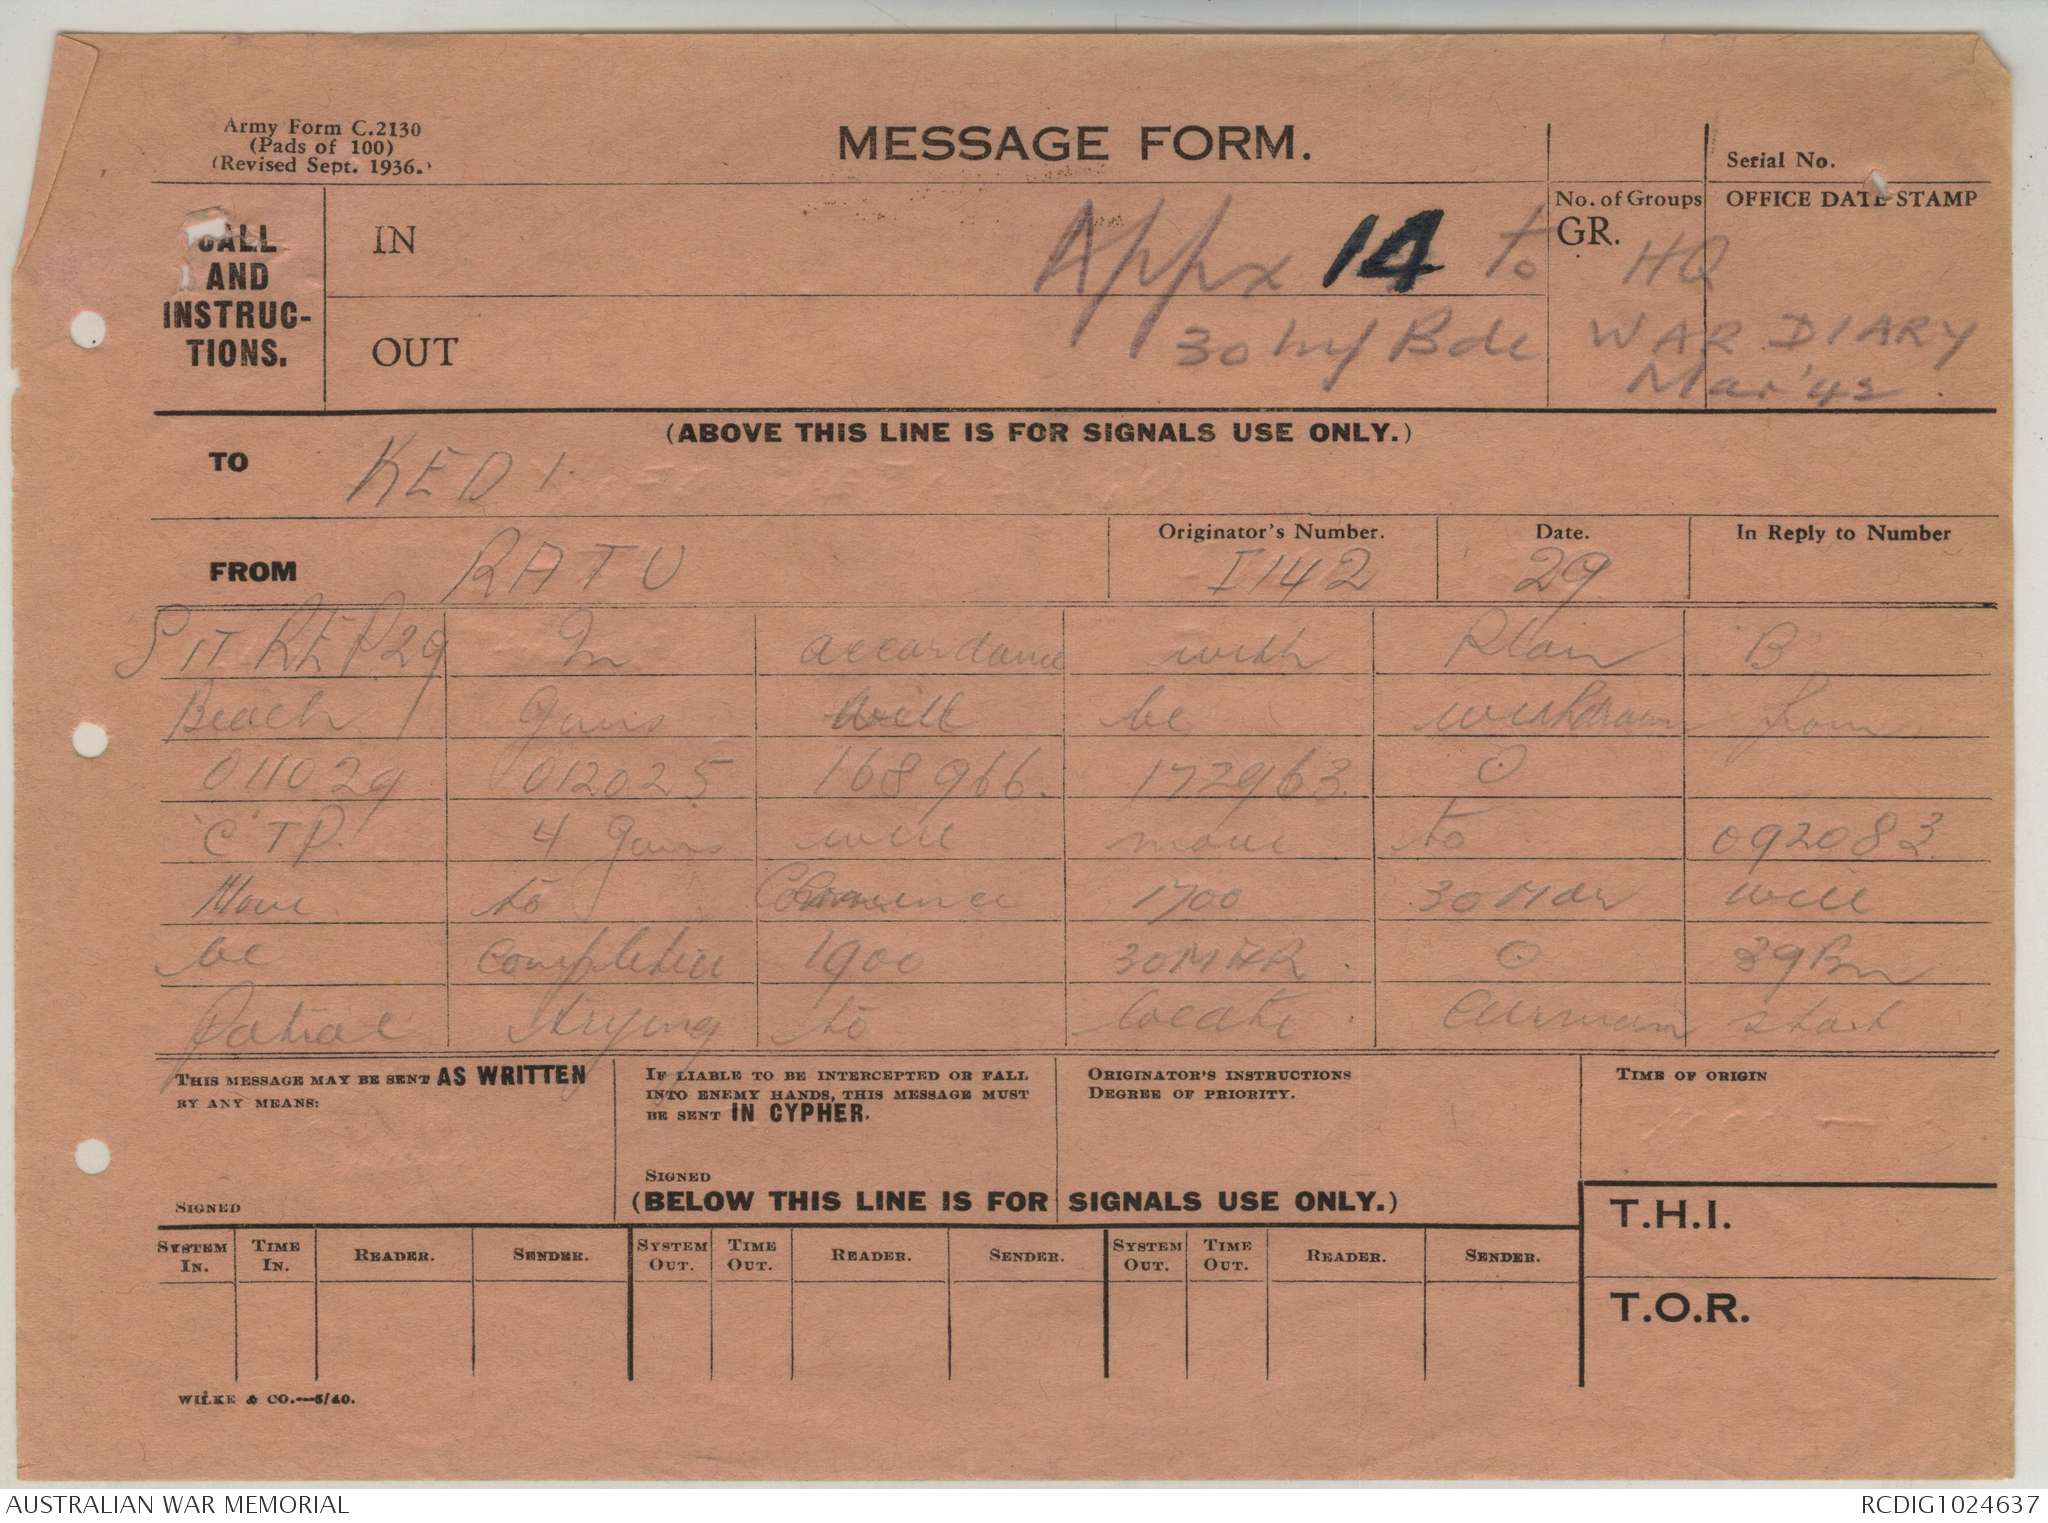 Army Form C.2130
(Pads of 100)
(Revised Sept. 1936.)
MESSAGE FORM.
Serial No.
CALL AND INSTRUC-TIONS.
IN
OUT
No. of Groups
GR.
OFFICE DATE STAMP
Appx 14 to HQ
30 Inf Bde WAR DIARY
Mar '42.
(ABOVE THIS LINE IS FOR SIGNALS USE ONLY.)
TO KEDI
FROM RATU
Originator's Number. I142
Date. 29
In Reply to Number
SITREP 29 In accordance with Plan B
Beach guns will be withdrawn from
011029 012025 168966. 172963. O
"C" TP. 4 guns will move to 092083.
Move to Commence 1700 30 Mar will
be 1900 30 MAR. O 39 Bn
Patrol trying to locate stack
THIS MESSAGE MAY BE SENT AS WRITTEN
BY ANY MEANS:
SIGNED
IF LIABLE TO BE INTERCEPTED OR FALL
INTO ENEMY HANDS, THIS MESSAGE MUST
BE SENT IN CYPHER.
SIGNED
ORIGINATOR'S INSTRUCTIONS
DEGREE OF PRIORITY.
TIME OF ORIGIN
(BELOW THIS LINE IS FOR SIGNALS USE ONLY.)
T.H.I.
T.O.R.
SYSTEM IN. TIME IN. READER. SENDER. SYSTEM OUT. TIME OUT. READER. SENDER. SYSTEM OUT. TIME OUT. READER. SENDER.
WILKE & CO.—5/40.
AUSTRALIAN WAR MEMORIAL
RCDIG1024637